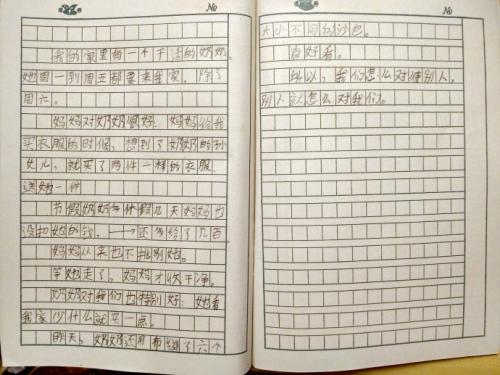 №
我的家里有一个干活的奶奶。
她周一到周五都要来我家。除了
周六。
妈妈对奶奶很好。妈妈给我
买衣服的时候，想到了奶奶的孙
女儿，就买了两件一样的衣服，
送她一件
节假奶奶休假几天妈妈也
没扣她的钱，还多给了几百
妈妈从来也不批别她。
等她走了。妈妈才收干净。
奶奶对我们也特别好：她看
我家少什么就买一点。
昨天，奶奶还用布缝了六个
№
大小不同的沙包。
真好看。
所以，我们怎么对待别人，
别人就怎么对我们。